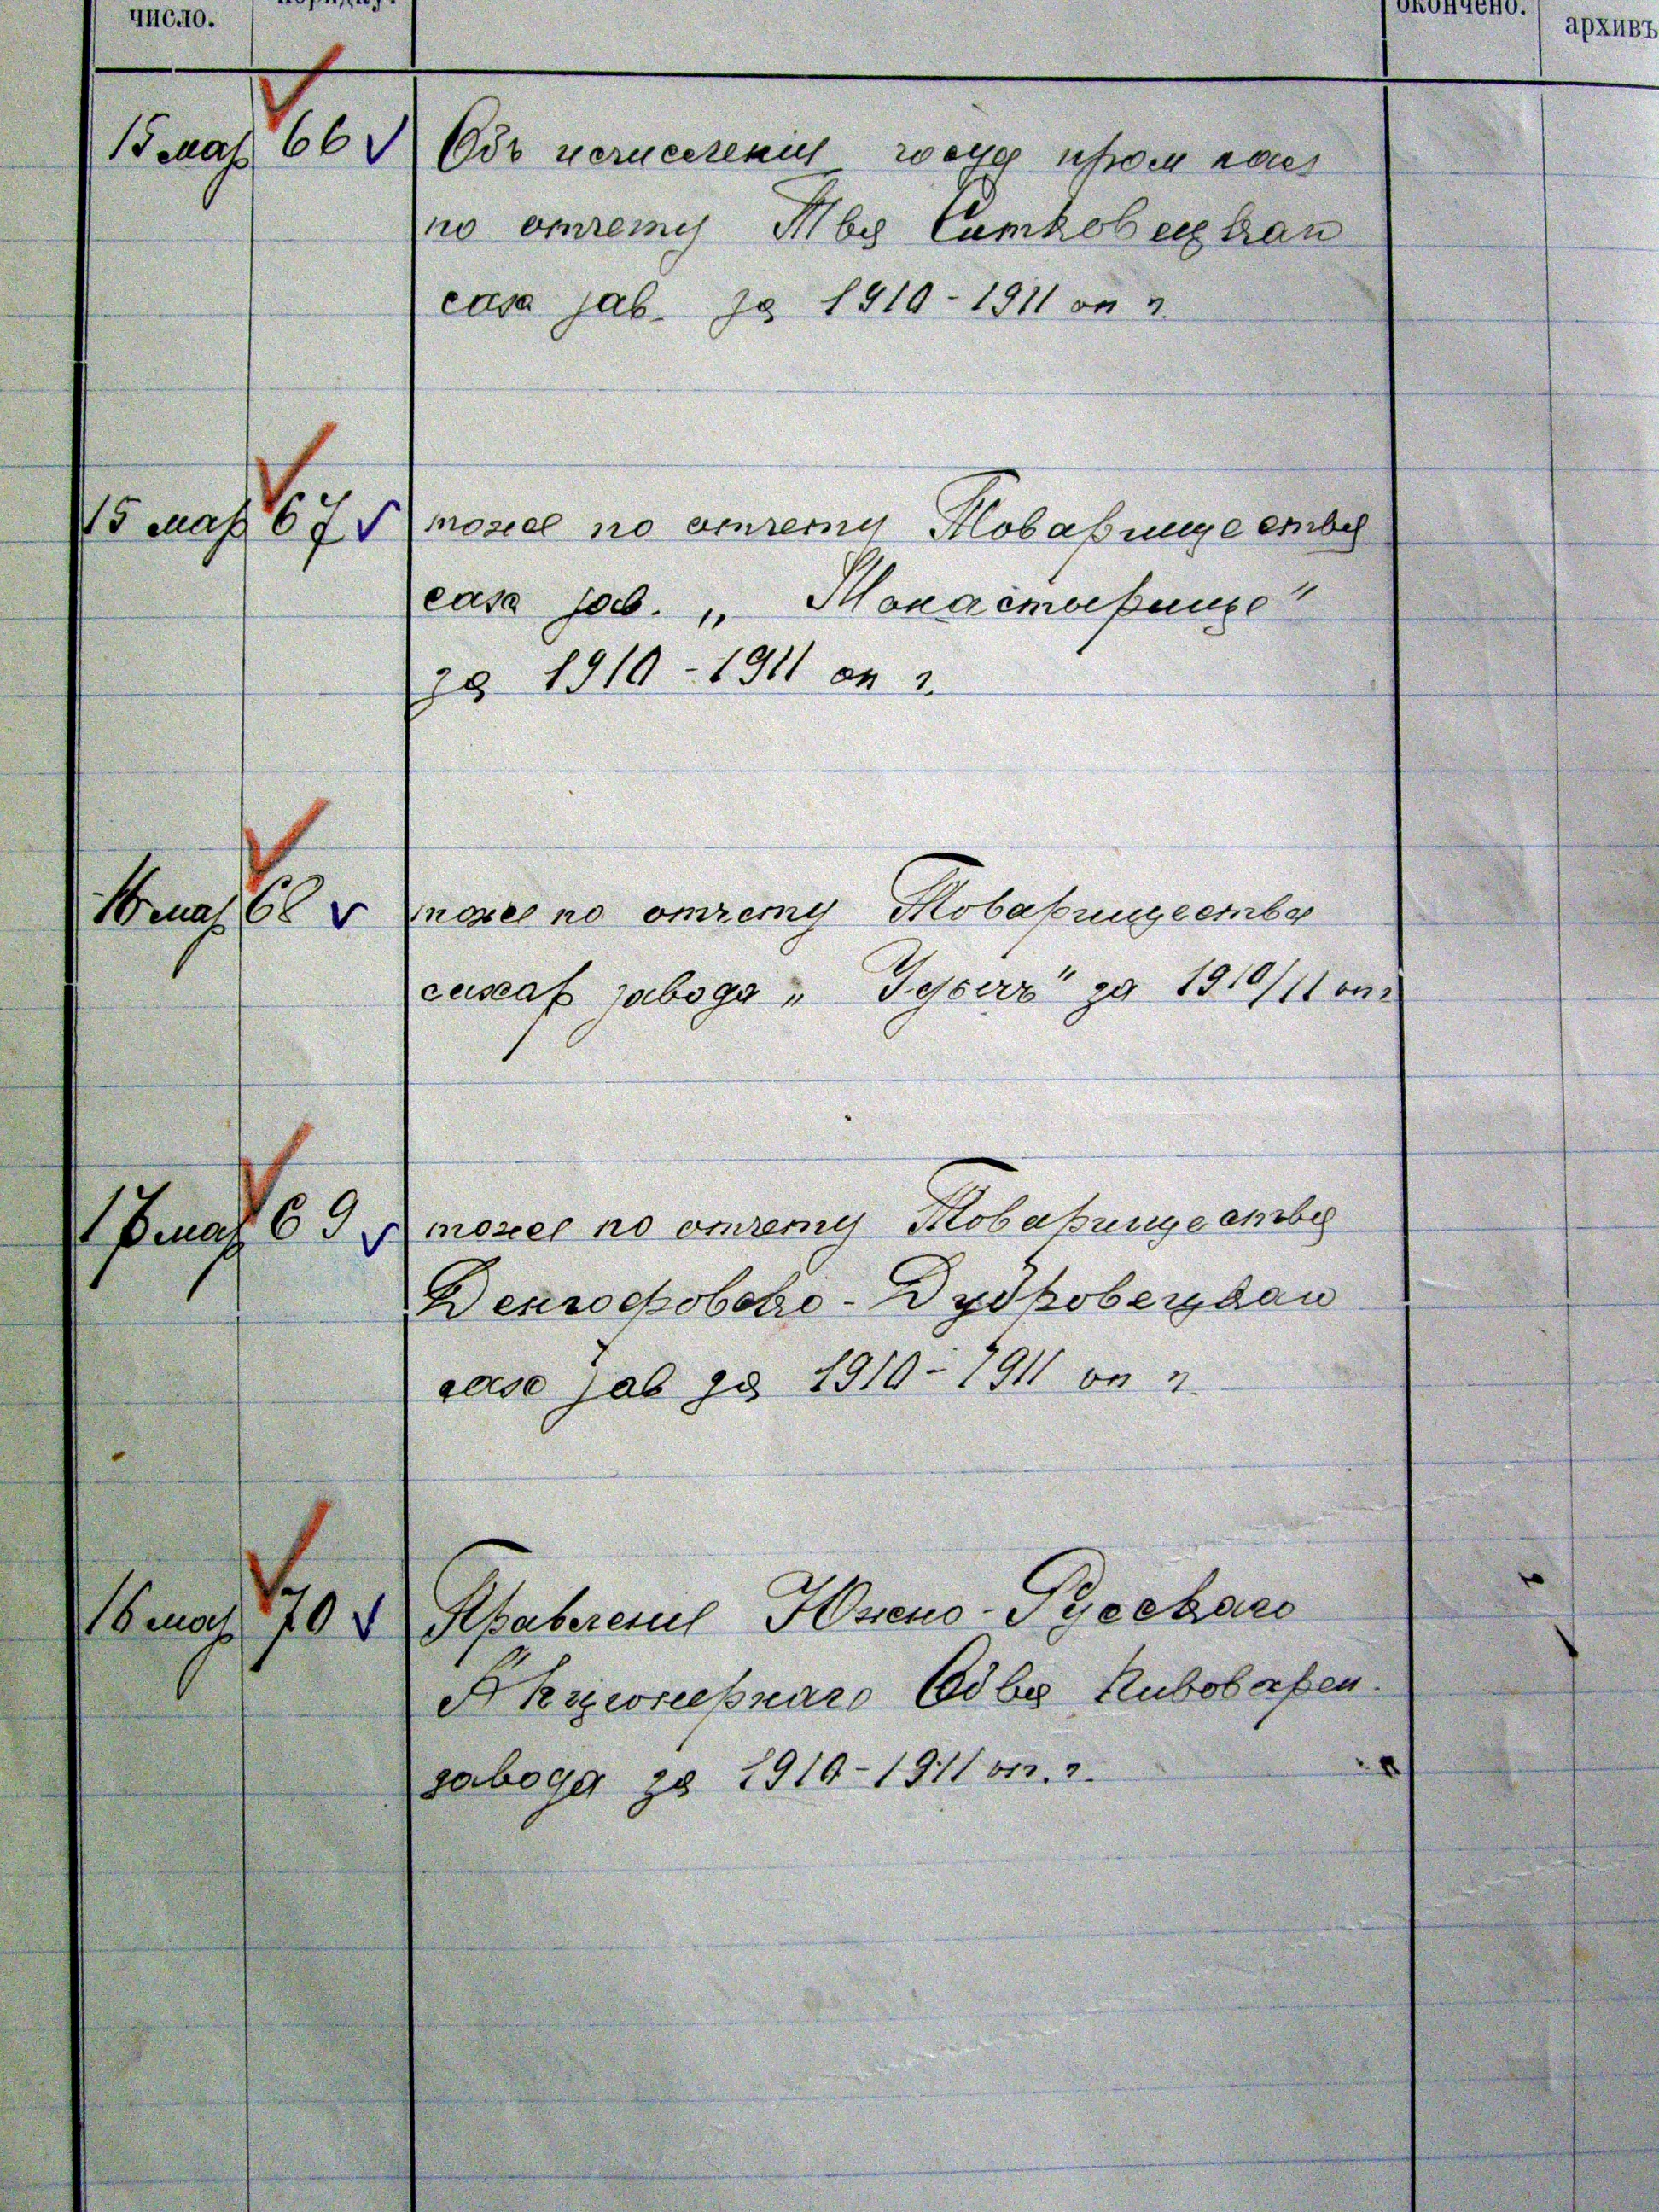 число. порядку. окончено. архивъ
15 мар 66 Объ исчисленіи госуд пром нал
по отчету Т-ва Ситковецкаго
сах зав. за 1910-1911 оп г.
15 мар 67 тоже по отчету Товарищества
сах зав. „Монастырище"
за 1910-1911 оп г.
16 мар 68 тоже по отчету Товарищества
сахар завода „ за 1910/11 оп г
17 мар 69 тоже по отчету Товарищества
Денгофовско-Дубровецкаго
сах зав за 1910-1911 оп г.
16 мар 70 Правленія Южно-Русскаго
Акціонернаго Об-ва Пивоварен.
завода за 1910-1911 оп. г.